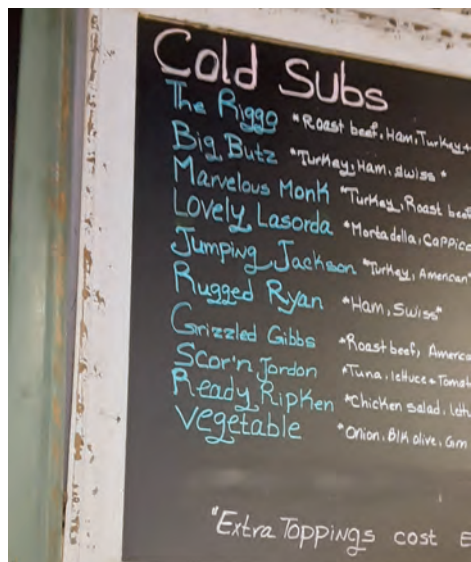 Cold Subs
The Riggo *Roast beef, Ham, Turkey +
Big Butz *Turkey, Ham, Swiss *
Marvelous Monk *Turkey, Roast beef
Lovely Lasorda *Mortadella, Cappico
Jumping Jackson *Turkey, American
Rugged Ryan *Ham, Swiss*
Grizzled Gibbs *Roast beef, America
Scor'n Jordon *Tuna, lettuce + Tomat
Ready Ripken *Chicken salad, lett
Vegetable *Onion, Blk olive,
"Extra Toppings cost E